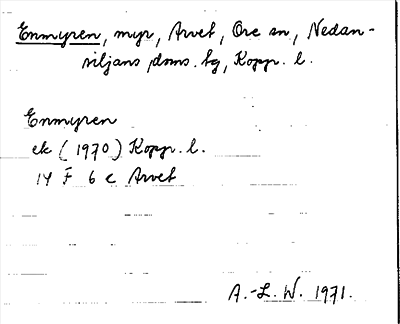 Enmyren, myr, Arvet, Ore sn, Nedan-
siljans doms. tg, Kopp. l.
Enmyren
ek (1970) Kopp. l.
14 F 6 c Arvet
A.-L. W. 1971.